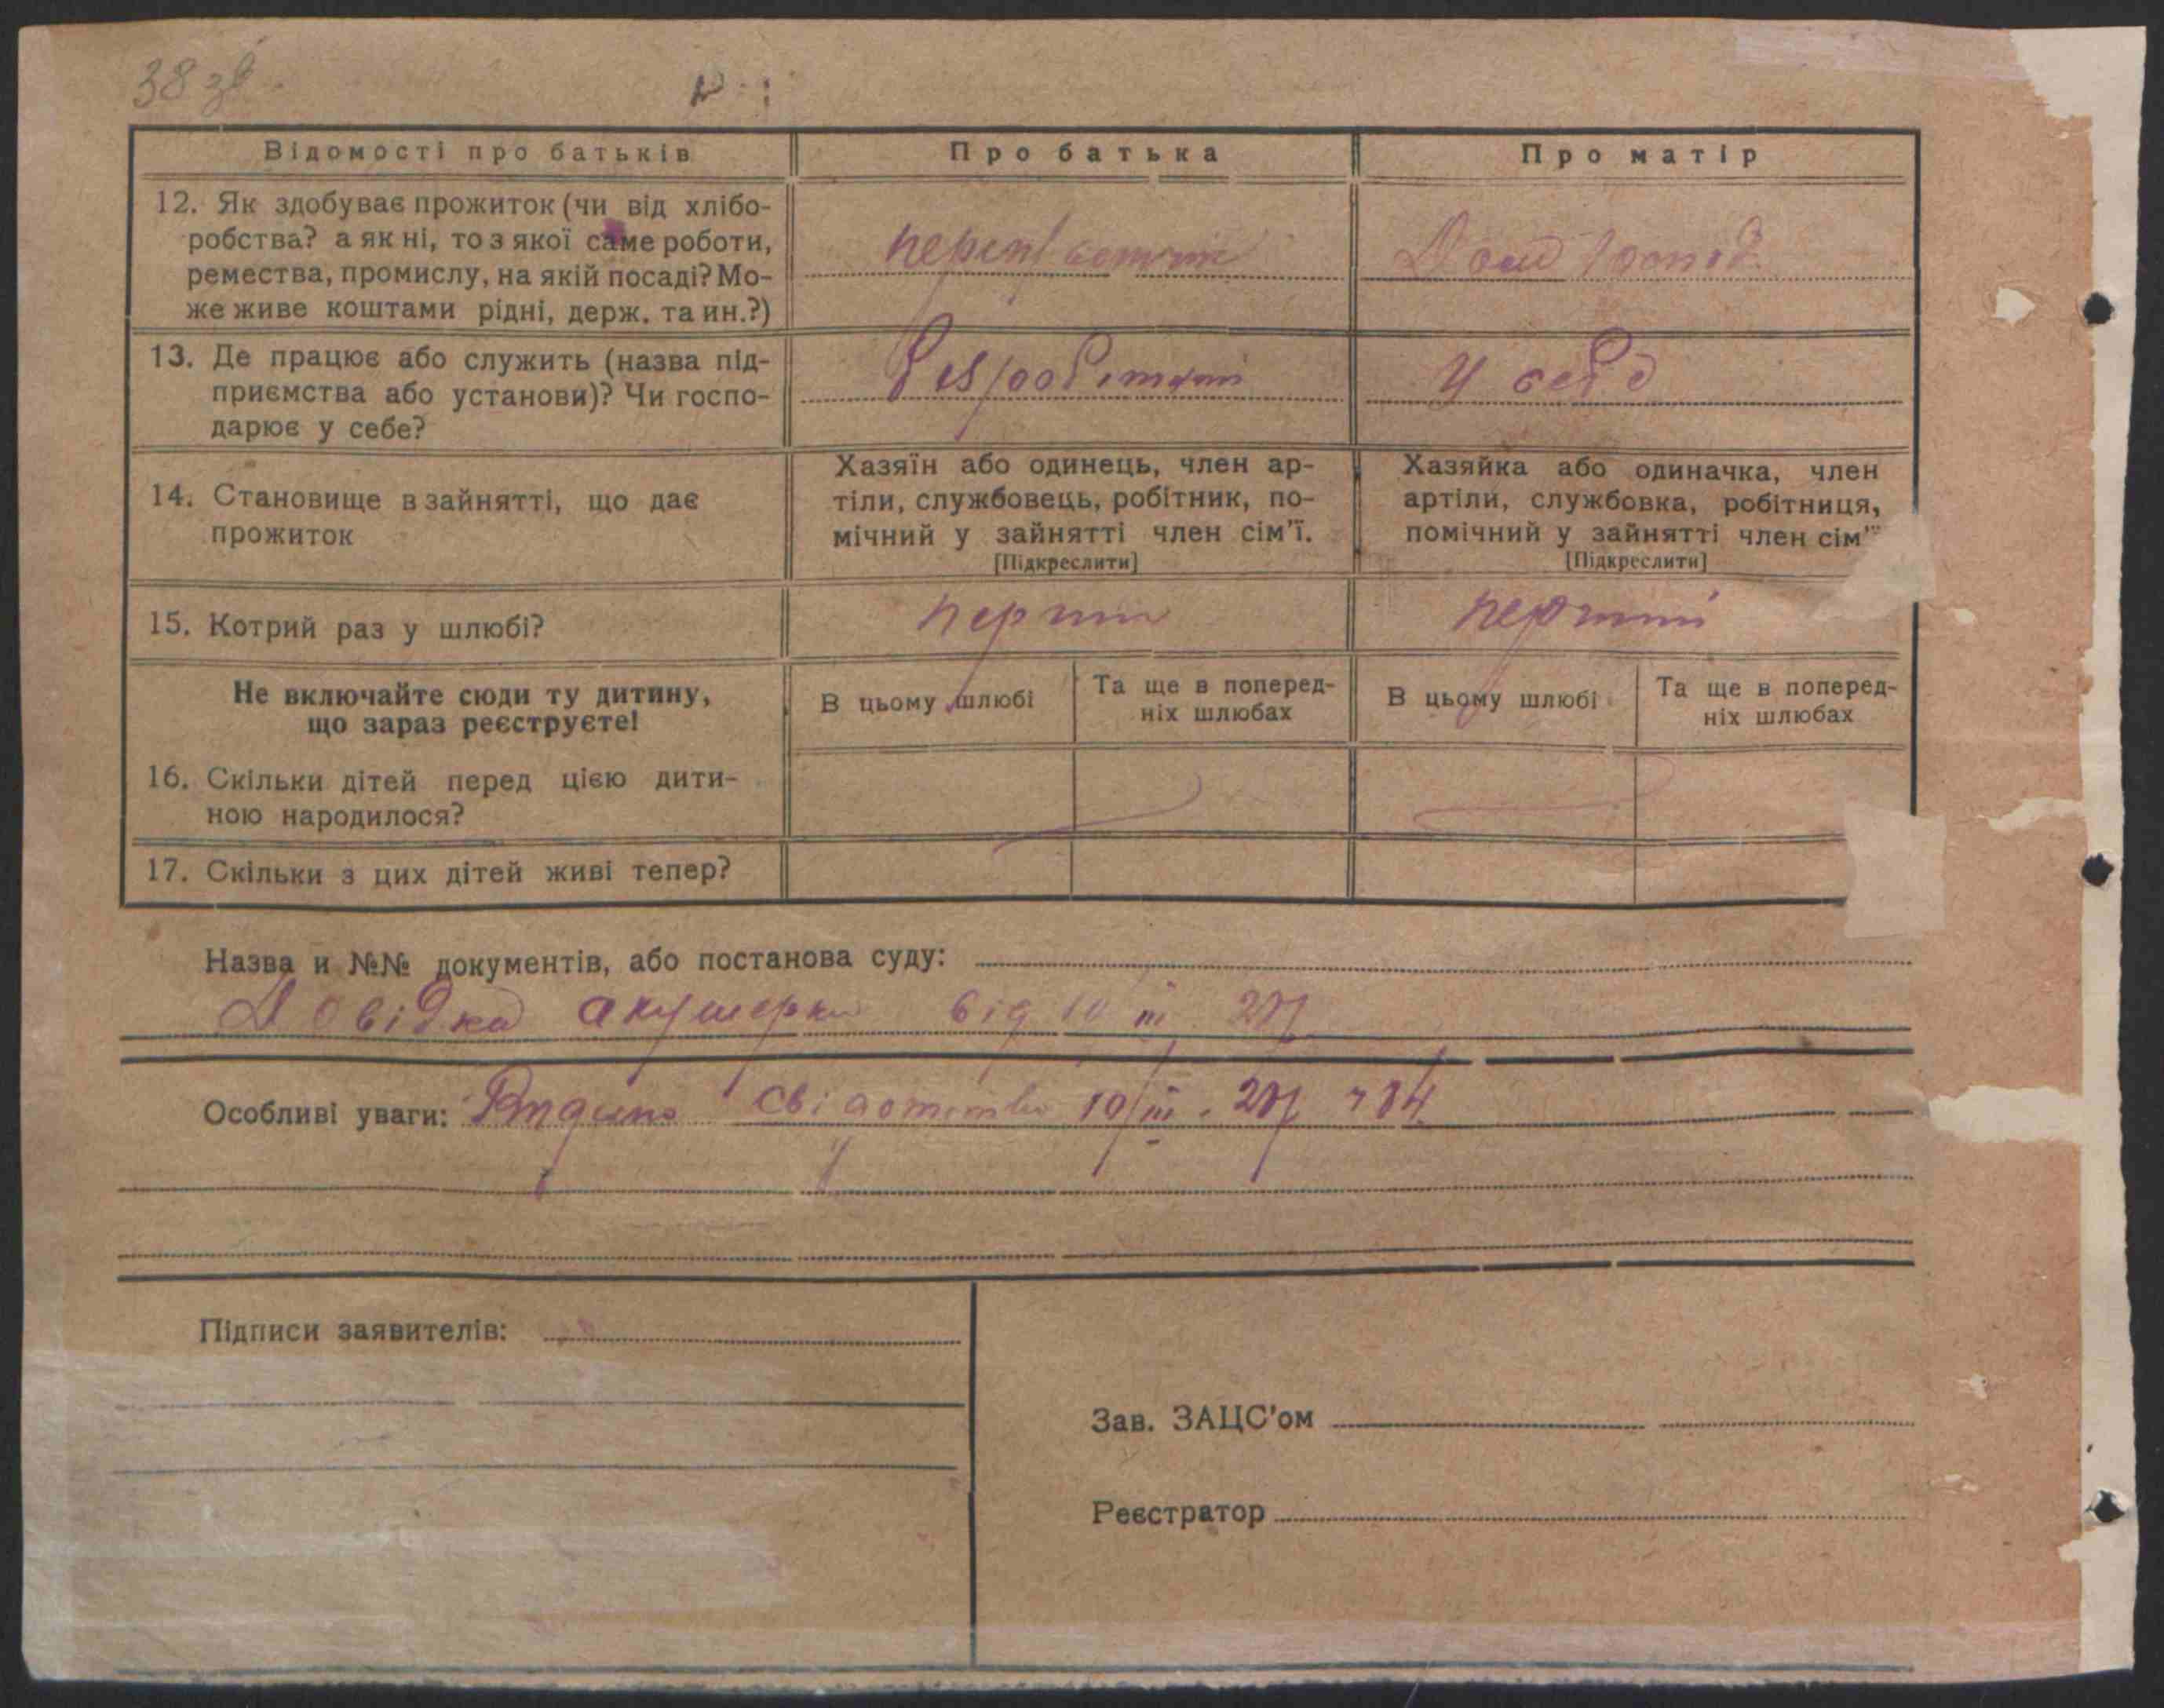 38 зв
Відомості про батьків
Про батька
Про матір
12. Як здобуває прожиток (чи від хлібо-
робства? а як ні, то з якої саме роботи,
ремества, промислу, на якій посаді? Мо-
же живе коштами рідні, держ. та ин.?)
Дом господ.
13. Де працює або служить (назва під-
приємства або установи)? Чи госпо-
дарює у себе?
Безробітний
У себе
14. Становище в зайнятті, що дає
прожиток
Хазяїн або одинець, член ар-
тіли, службовець, робітник, по-
мічний у зайнятті член сім'ї.
[Підкреслити]
Хазяйка або одиначка, член
артіли, службовка, робітниця,
помічний у зайнятті член сім'ї
[Підкреслити]
15. Котрий раз у шлюбі?
перший
перший
Не включайте сюди ту дитину,
що зараз реєструєте!
В цьому шлюбі
Та ще в поперед-
ніх шлюбах
В цьому шлюбі
Та ще в поперед-
ніх шлюбах
16. Скільки дітей перед цією дити-
ною народилося?
17. Скільки з цих дітей живі тепер?
Назва и №№ документів, або постанова суду:
Довідка акушерки від 10 III 27р
Особливі уваги: 10/III 27р 784
Підписи заявителів:
Зав. ЗАЦС'ом
Реєстратор